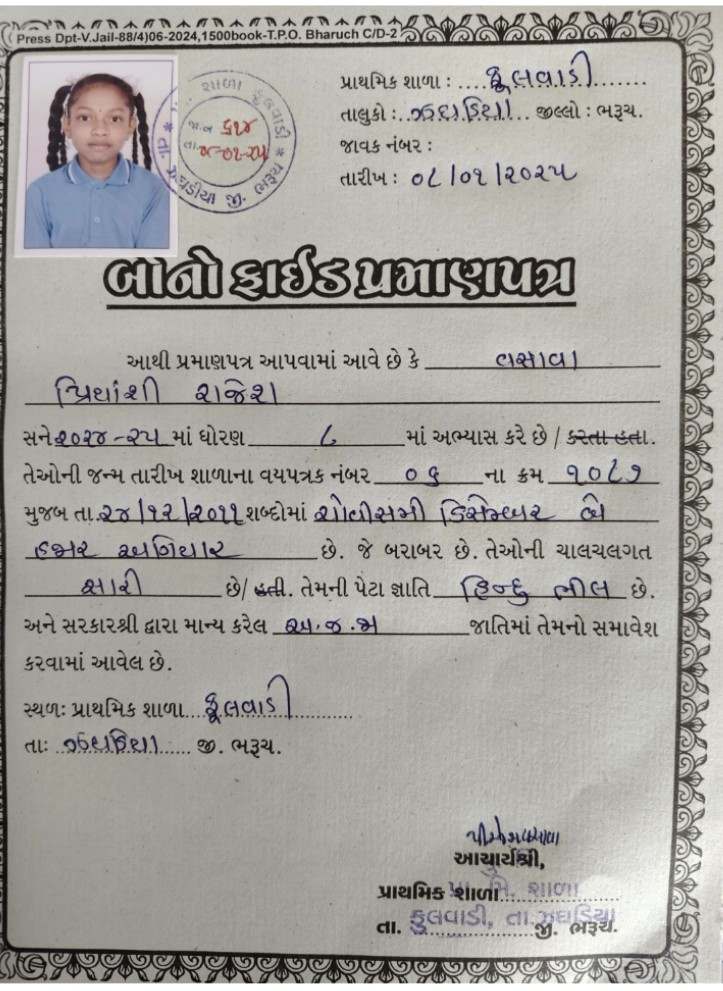 ( Press Dpt-V.Jail-88/4)06-2024,1500book-T.P.O. Bharuch C/D-2
પ્રાથમિક શાળા : ....ફૂલવાડી.......
તાલુકો :..ઝઘડિયા... જીલ્લો : ભરૂચ.
જાવક નંબર :
તારીખ : ૦૮/૦૧/૨૦૨૫
શાળા ફૂલવાડી
જા.ન ૬૧૪
તા.
* તા. ઝઘડીયા જી. ભરૂચ *
બોનો ફાઈડ પ્રમાણપત્ર
આથી પ્રમાણપત્ર આપવામાં આવે છે કે વસાવા
પ્રિયાંશી રાજેશ
સને ૨૦૨૪-૨૫ માં ધોરણ ૮ માં અભ્યાસ કરે છે / કરતા હતા.
તેઓની જન્મ તારીખ શાળાના વયપત્રક નંબર ૦૬ ના ક્રમ ૧૦૮૭
મુજબ તા.૨૪/૧૨/૨૦૧૧ શબ્દોમાં ચોવીસમી ડિસેમ્બર બે
હજાર અગિયાર છે. જે બરાબર છે. તેઓની ચાલચલગત
સારી છે/ હતી. તેમની પેટા જ્ઞાતિ હિન્દુ ભીલ છે.
અને સરકારશ્રી દ્વારા માન્ય કરેલ અ.જ.જા જાતિમાં તેમનો સમાવેશ
કરવામાં આવેલ છે.
સ્થળઃ પ્રાથમિક શાળા...ફૂલવાડી.............
તાઃ ..ઝઘડિયા..... જી. ભરૂચ.
આચાર્યશ્રી,
પ્રાથમિક શાળા....................
પ્રા મિ. શાળા
તા. ....................જી. ભરૂચ.
ફુલવાડી, તા.ઝઘડિયા